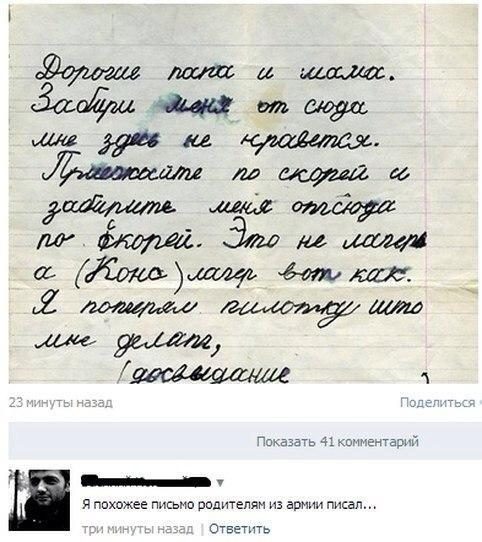 Дорогие папа и мама.
Забири меня от сюда
мне здесь не нравется.
Приежжайте по скорей и
забирите меня отсюда
по скорей. Это не лагерь
а (Конс) лагер вот как.
Я потерял пилотку што
мне делать,
(досвидание
23 минуты назад
Поделиться
Показать 41 комментарий
Я похожее письмо родителям из армии писал...
три минуты назад | Ответить